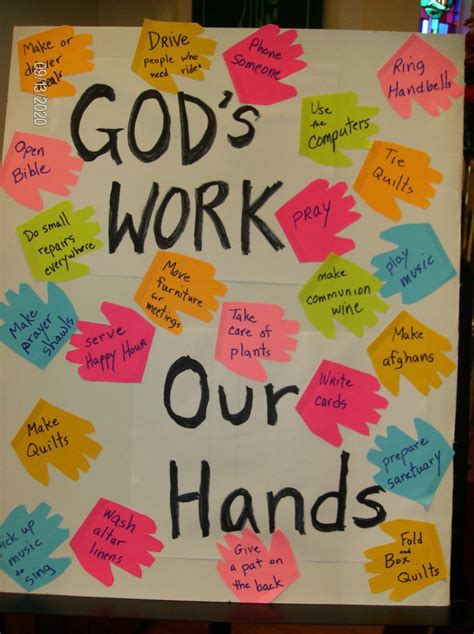 Make or
deliver
meals
Drive
people who
need rides
Phone
Someone
Ring
Handbells
GOD'S
Use
the
computers
Open
Bible
Tie
Quilts
WORK
PRAY
Do small
repairs
everywhere
play
music
Move
furniture
for
meetings
make
communion
wine
Make
prayer
shawls
serve
Happy Hour
Take
care of
plants
Make
afghans
Our
Write
cards
Make
Quilts
prepare
sanctuary
Hands
Pick up
music
to
sing
Wash
altar
linens
Give
a pat on
the back
Fold
and
Box
Quilts
09/13/2020